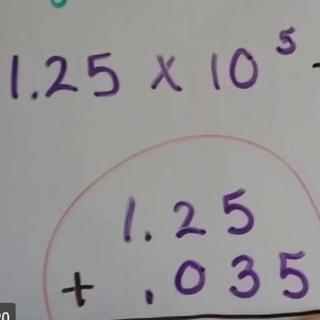 1.25 x 10⁵ -
1.25
+ .035
20